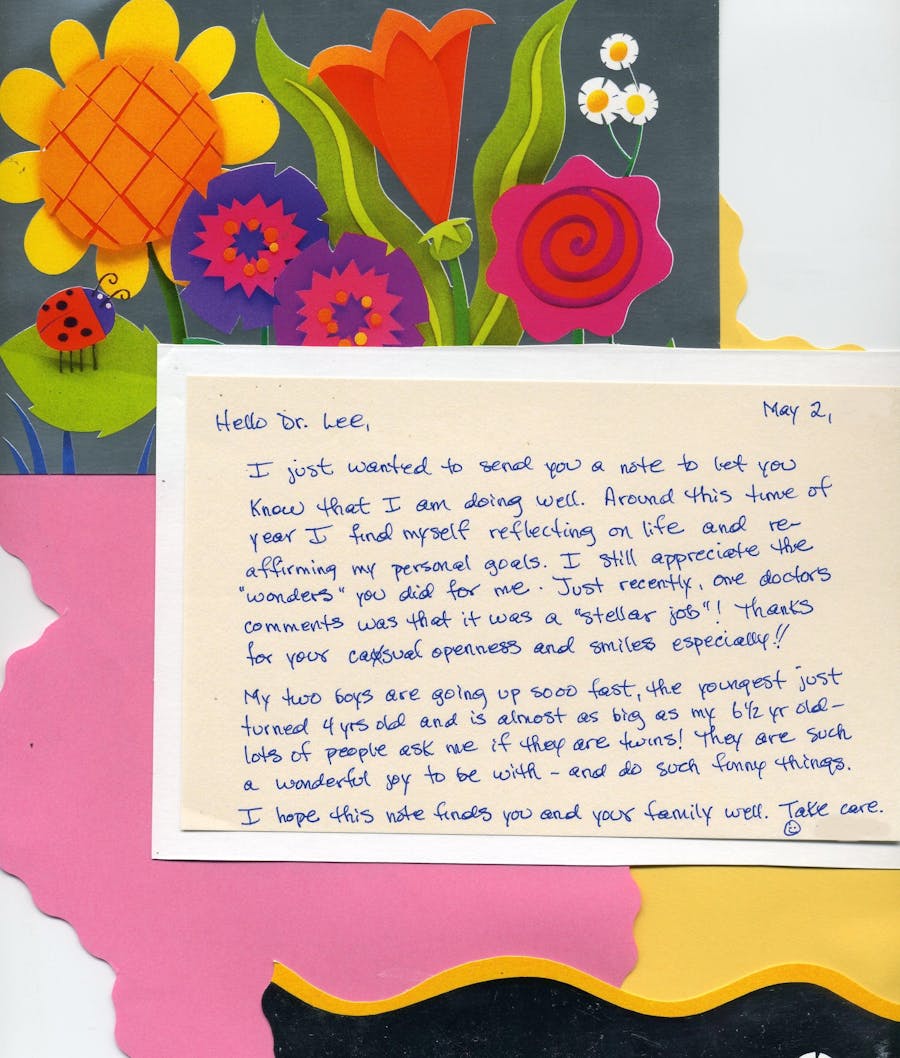 Hello Dr. Lee,
May 2,
I just wanted to send you a note to let you
know that I am doing well. Around this time of
year I find myself reflecting on life and re-
affirming my personal goals. I still appreciate the
"wonders" you did for me. Just recently, one doctors
comments was that it was a "stellar job"! Thanks
for your casual openness and smiles especially!!
My two boys are going up sooo fast, the youngest just
turned 4 yrs old and is almost as big as my 6 1/2 yr old-
lots of people ask me if they are twins! They are such
a wonderful joy to be with - and do such funny things.
I hope this note finds you and your family well. Take care.